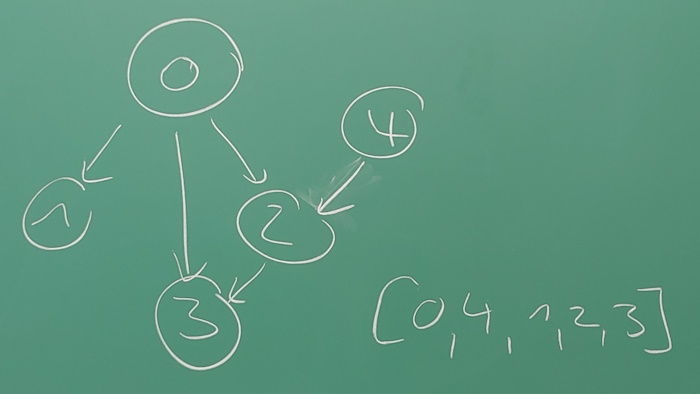 0
4
1
2
3
[0,4,1,2,3]